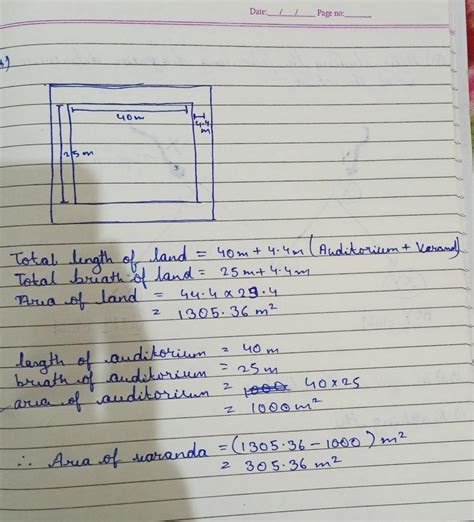 Date: __/__/__ Page no: ______
40m
4.4
m
25m
Total length of land = 40m + 4.4m (Auditorium + Varand)
Total briath of land = 25m + 4.4m
Area of land = 44.4 x 29.4
= 1305.36 m²
length of auditorium = 40m
briath of auditorium = 25m
area of auditorium = 1000 40 x 25
= 1000m²
∴ Area of varanda = (1305.36 - 1000) m²
= 305.36 m²